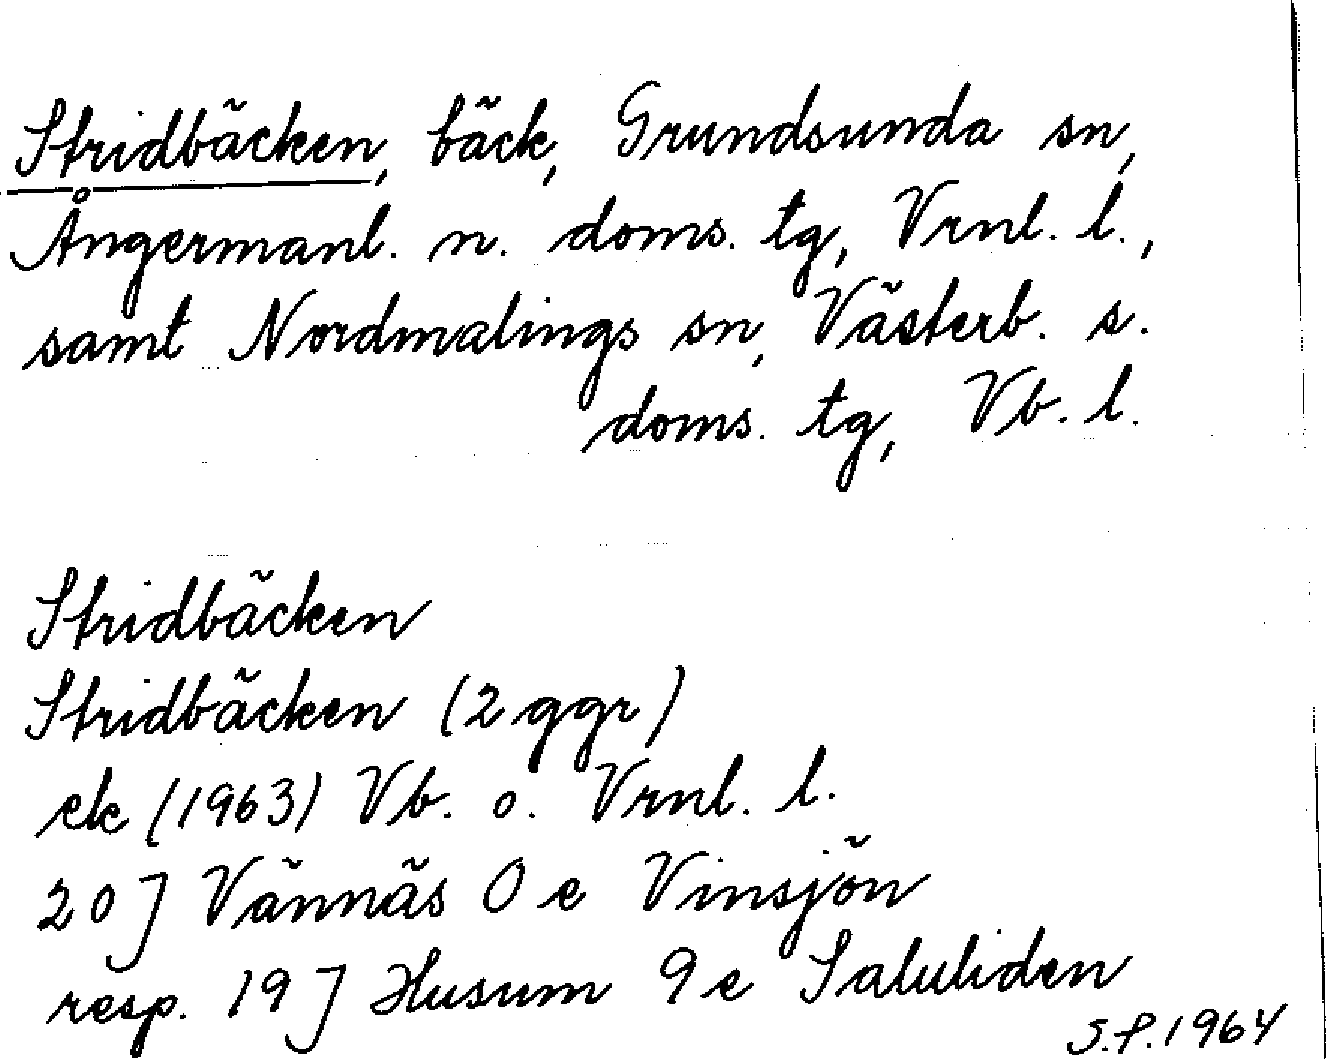 Stridbäcken, bäck, Grundsunda sn,
Ångermanl. n. doms. tg, Vrnl. l.,
samt Nordmalings sn, Västerb. s.
doms. tg, Vb. l.
Stridbäcken
Stridbäcken (2 ggr)
ek (1963) Vb. o. Vrnl. l.
20 J Vännäs 0 e Vinsjön
resp. 19 J Husum 9 e Saluliden
S.P. 1964